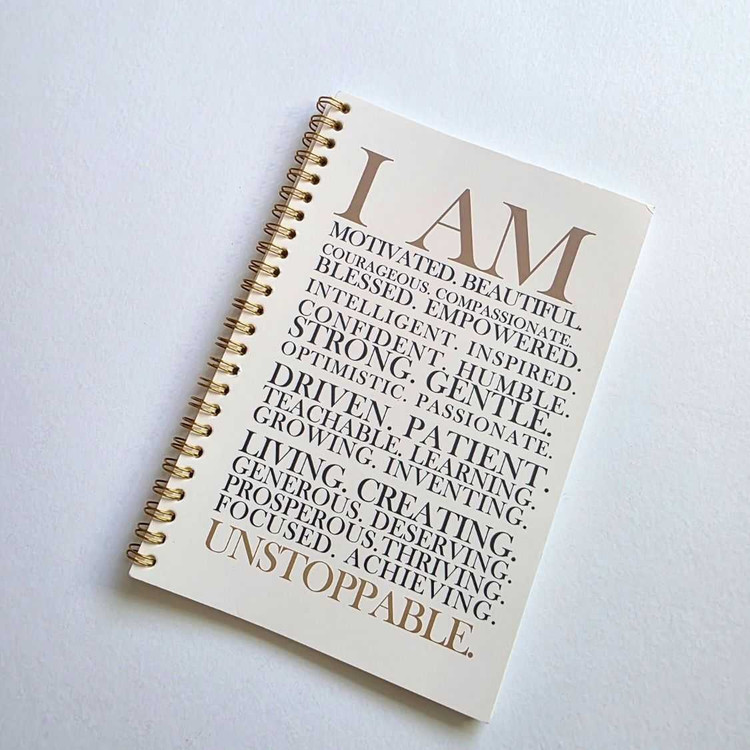 I AM
MOTIVATED. BEAUTIFUL.
COURAGEOUS. COMPASSIONATE.
BLESSED. EMPOWERED.
INTELLIGENT. INSPIRED.
CONFIDENT. HUMBLE.
STRONG. GENTLE.
OPTIMISTIC. PASSIONATE.
DRIVEN. PATIENT.
TEACHABLE. LEARNING.
GROWING. INVENTING.
LIVING. CREATING.
GENEROUS. DESERVING.
PROSPEROUS.THRIVING.
FOCUSED. ACHIEVING.
UNSTOPPABLE.